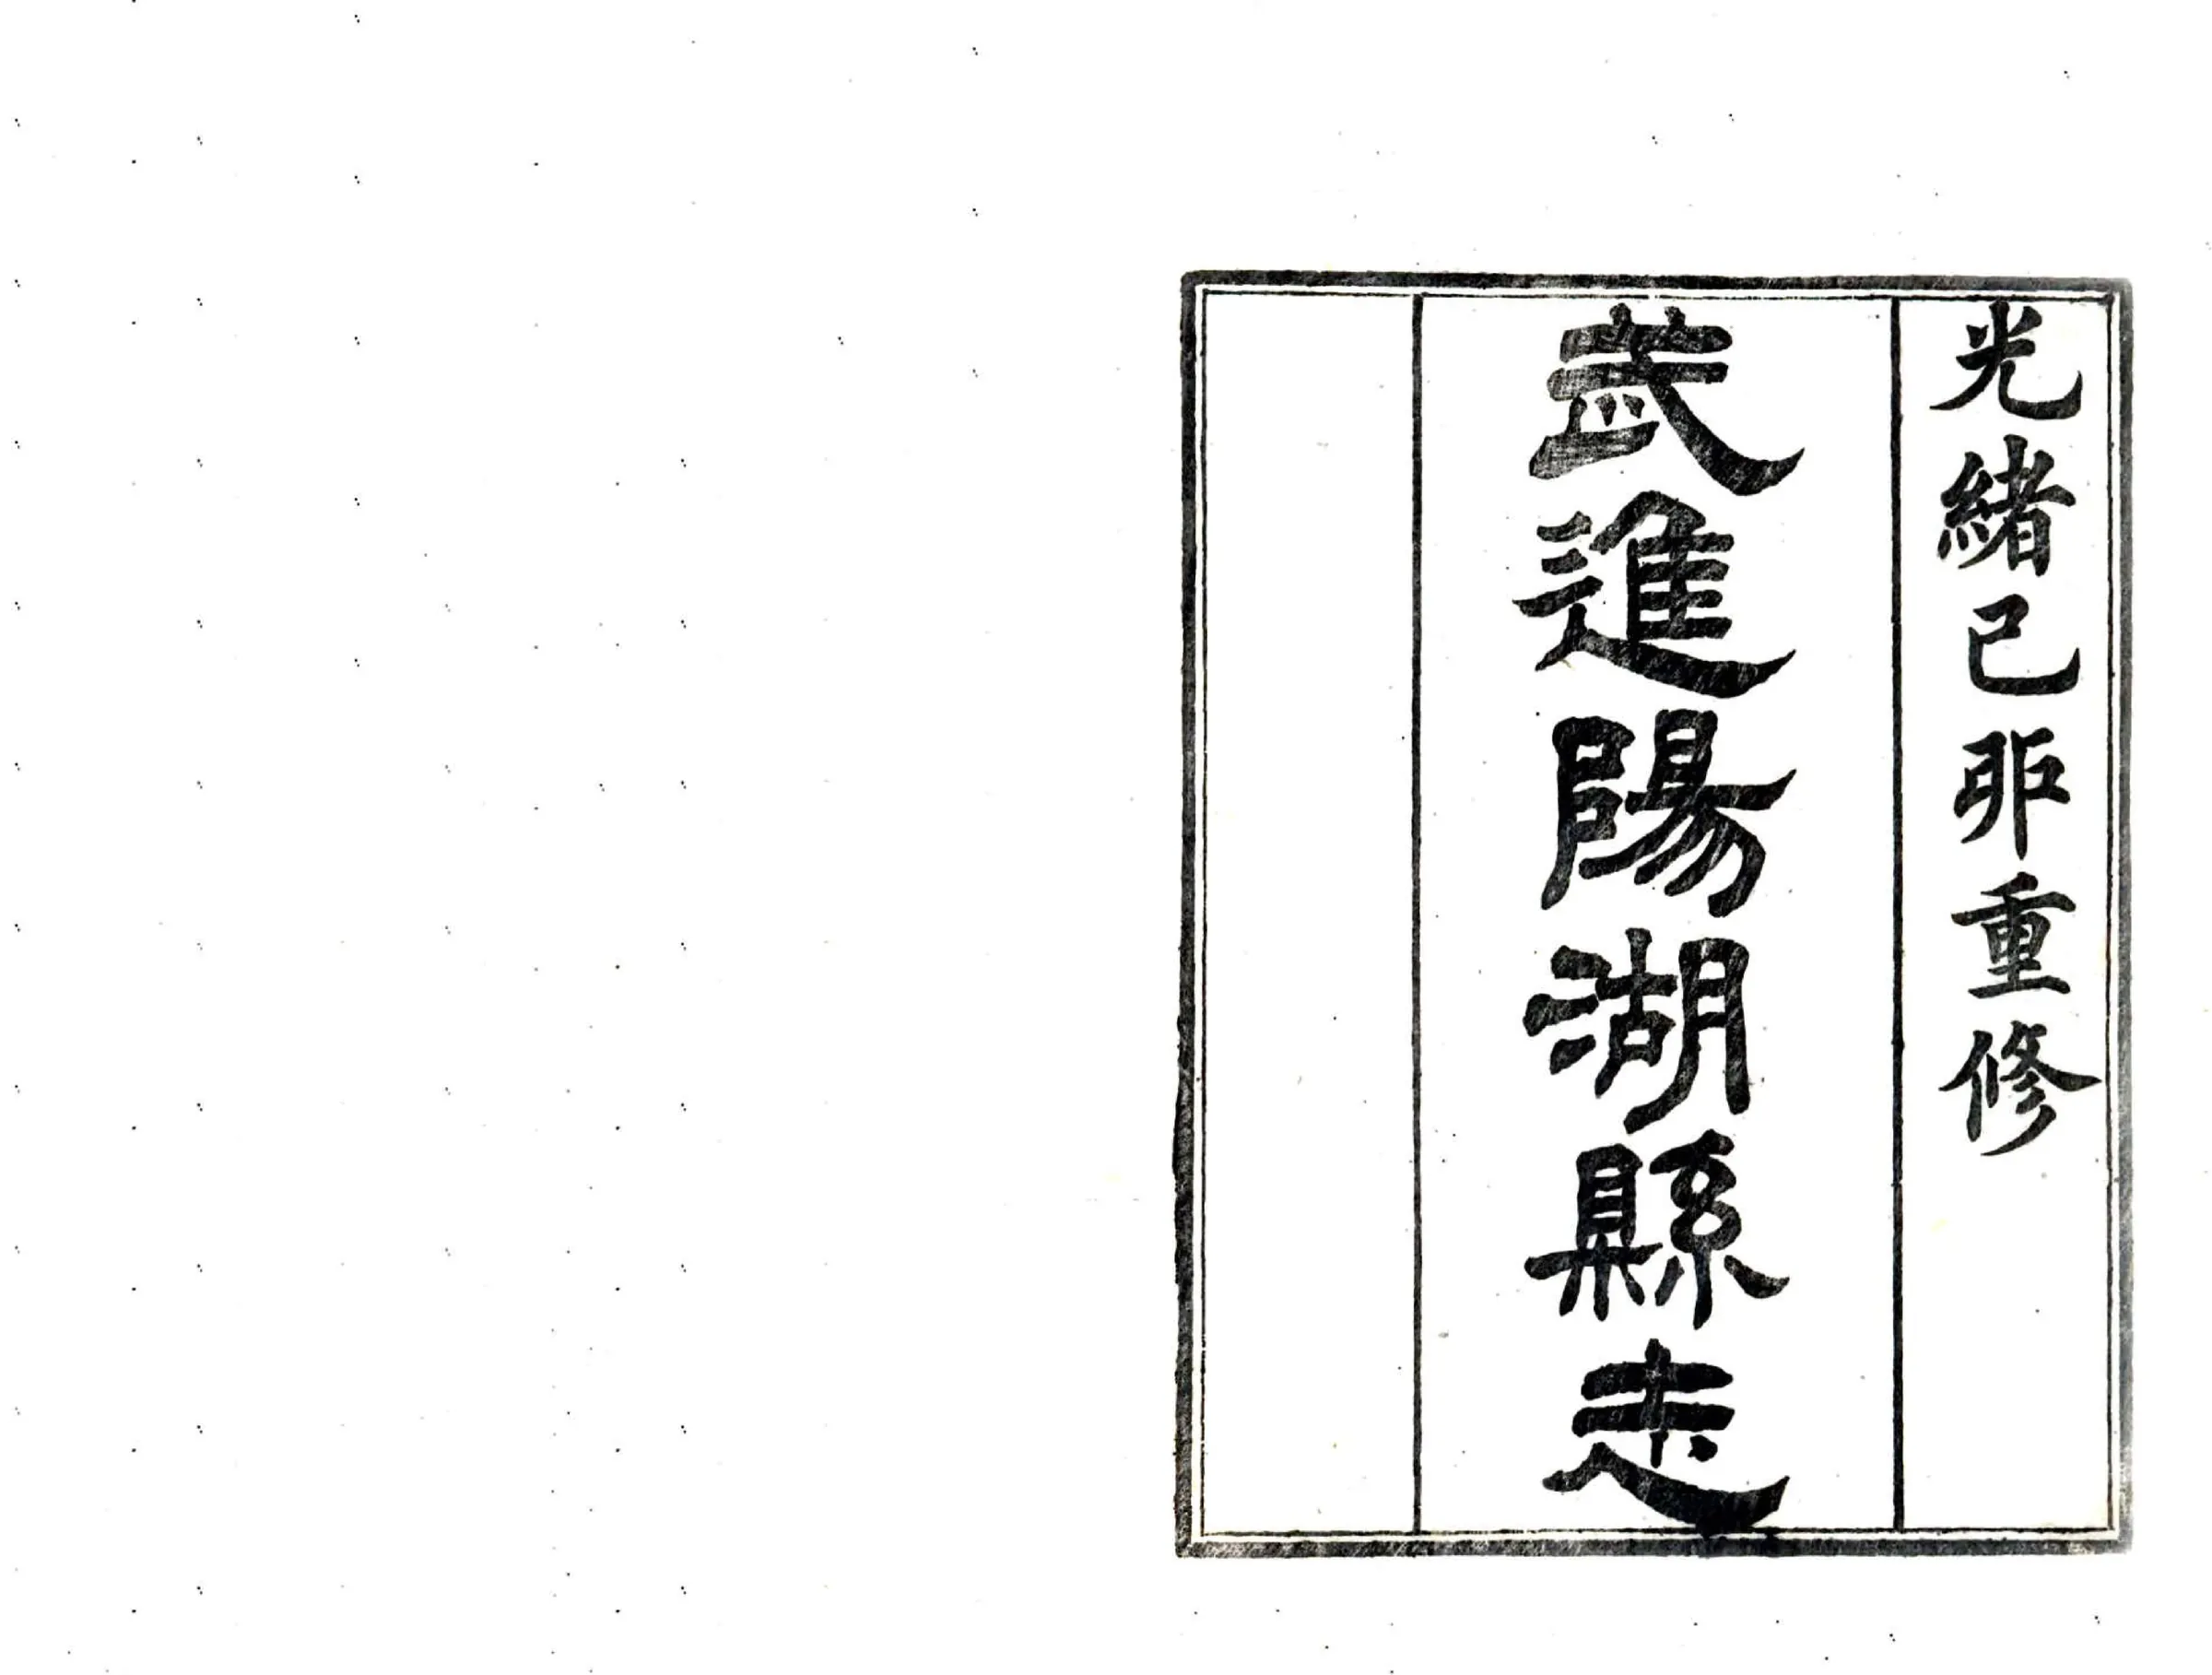 光緒己卯重修
武進陽湖縣志